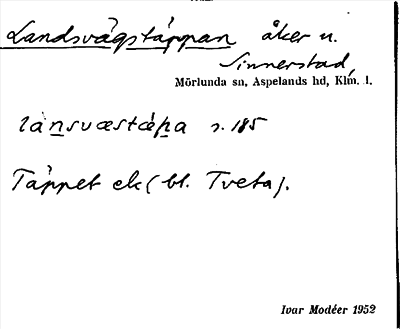 Landsvägstäppan åker n.
Sinnerstad,
Mörlunda sn, Aspelands hd, Klm. l.
lànsvæstæ̀pa s. 185
Täppet ek (bl. Tveta).
Ivar Modéer 1952